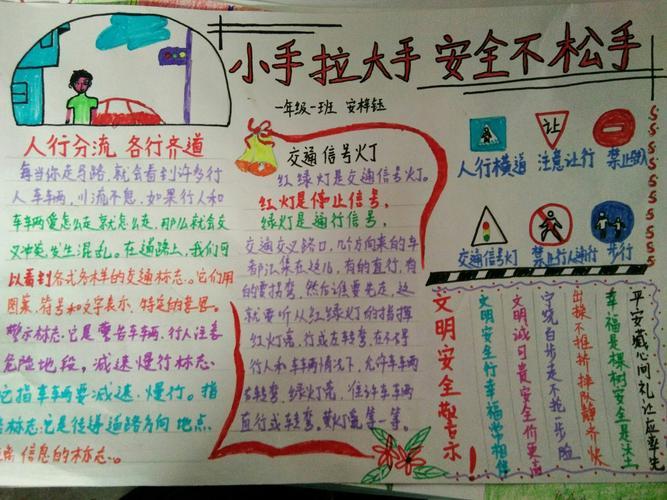 小手拉大手 安全不松手
一年级一班 安梓钰
人行分流 各行齐道
每当你走马路,就会看到许多行
人车车辆,川流不息,如果行人和
车车两爱怎么走就怎么走,那么就会交
叉冲突,发生混乱。在道路上,我们可
以看到各式各样的交通标志。它们用
图案,符号和文字表示,特定的意思。
警示标志:它是警告车车辆,行人注意
危险地段,减速慢行标志,
它指车车辆要减速,慢行。指
标志:它是传递道路方向 地点
信息的标志。
交通信号灯
红绿灯是交通信号火灯。
红火灯是停止信号,
绿火灯是通行信号,
交通交叉路口,几个方向来的车
都汇集在这儿,有的直行,有
的要拐弯,然后谁要先走,这
就要听从红绿火灯的指挥
红火灯亮,行或左转弯,在不碍
行人和车车辆情况下,允许车车辆
右转弯,绿火灯亮,准许车车辆
直行或转弯。黄火灯亮等一等。
人行横道 注意让行 禁止驶入
让
交通信号灯 禁止行人通行 步行
文明安全敬言示!
平安藏心间礼让应率先
幸福是棵树安全是沃土
出操不推挤 排队静齐快
宁绕百步走不抢一步险
文明诚可贵安全价更高
文明安全行幸福常相伴